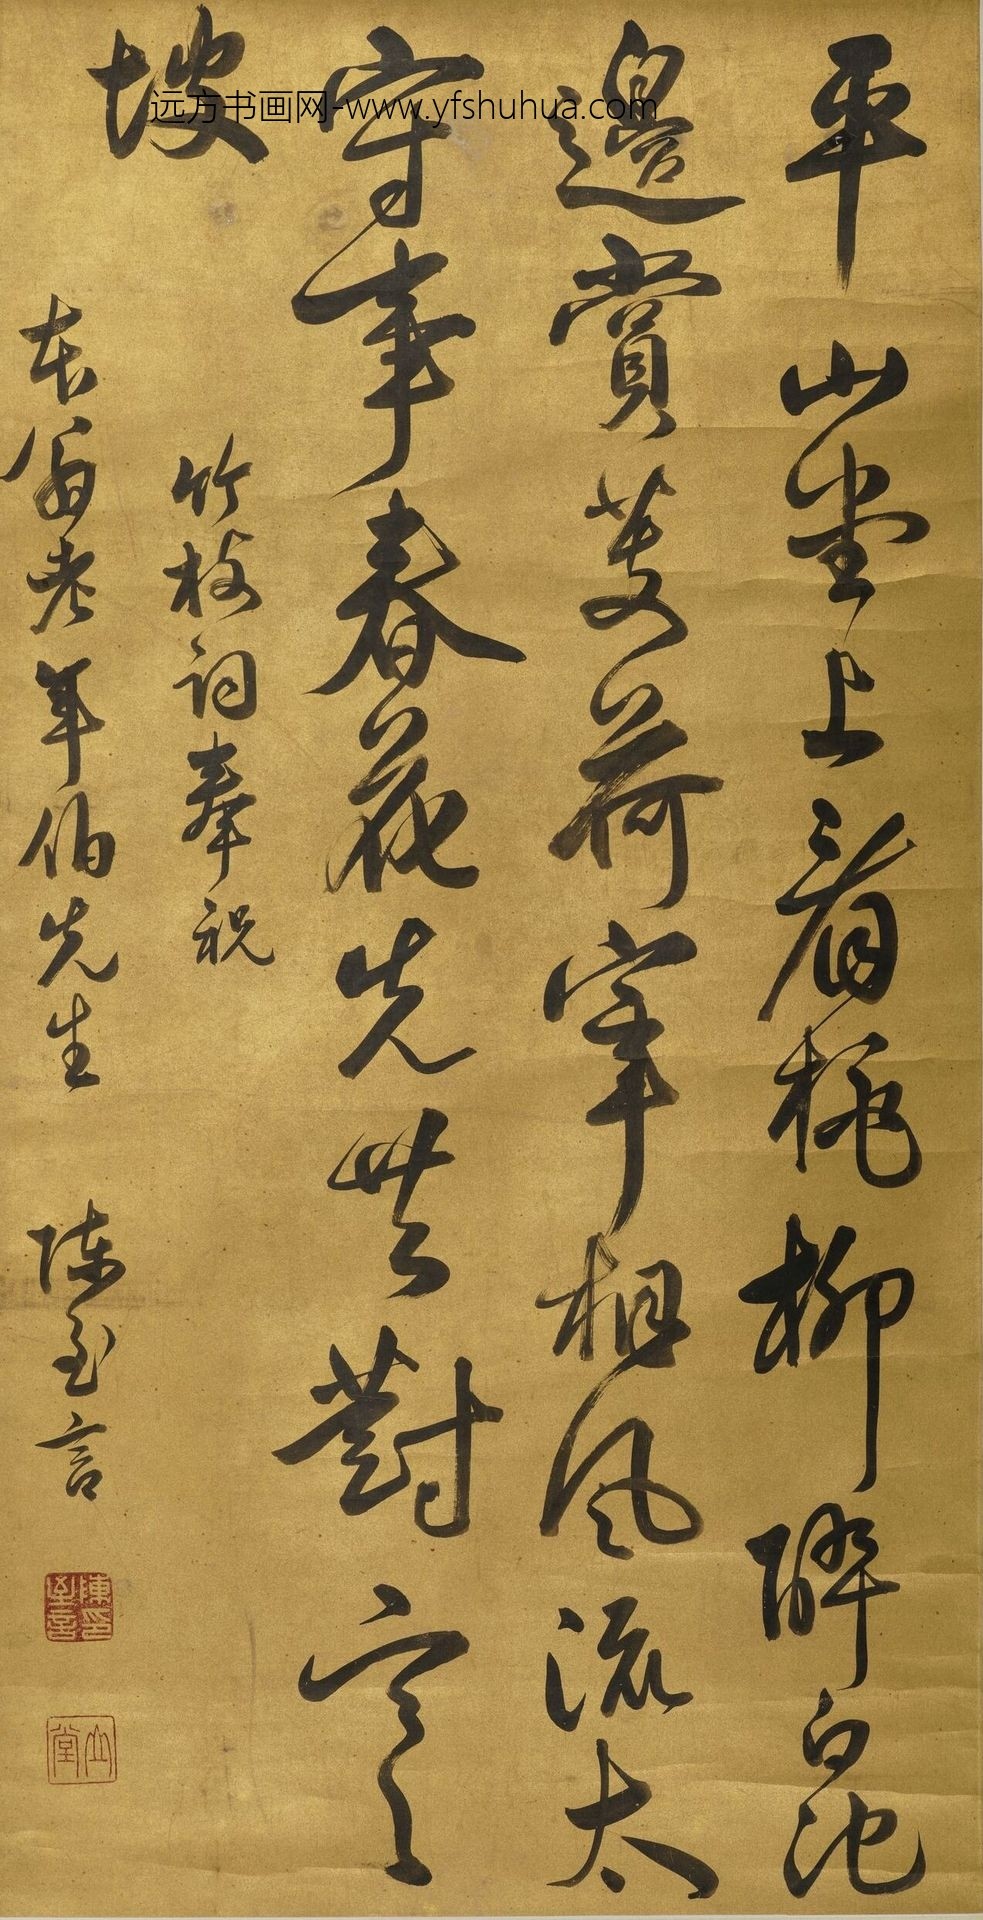 平山堂上看桃柳醉白池
邊賞芰荷宰相風流太
守事春花先共對言
坡
竹枝詞奉祝
老年伯先生
陳至言
陳至言印
山堂
远方书画网-www.yfshuhua.com